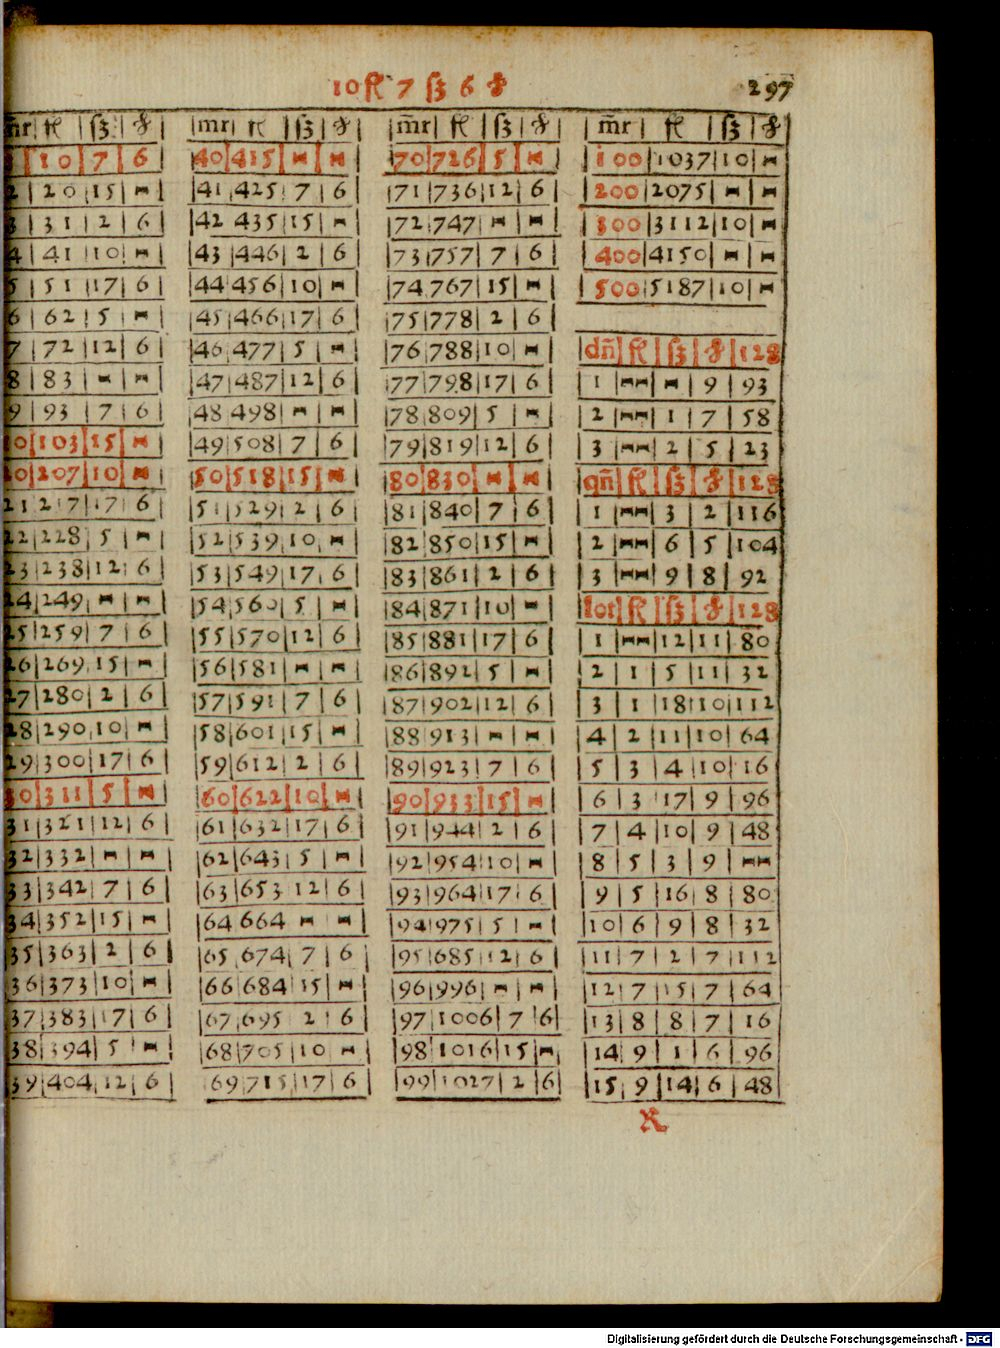 10 fl 7 ſʒ 6 ₰
297
m̃r fl ſʒ ₰
1 10 7 6
2 20 15 –
3 31 2 6
4 41 10 –
5 51 17 6
6 62 5 –
7 72 12 6
8 83 – –
9 93 7 6
10 103 15 –
20 207 10 –
21 217 17 6
22 228 5 –
23 238 12 6
24 249 – –
25 259 7 6
26 269 15 –
27 280 2 6
28 290 10 –
29 300 17 6
30 311 5 –
31 321 12 6
32 332 – –
33 342 7 6
34 352 15 –
35 363 2 6
36 373 10 –
37 383 17 6
38 394 5 –
39 404 12 6
mr fl ſʒ ₰
40 415 – –
41 425 7 6
42 435 15 –
43 446 2 6
44 456 10 –
45 466 17 6
46 477 5 –
47 487 12 6
48 498 – –
49 508 7 6
50 518 15 –
51 529 2 6
52 539 10 –
53 549 17 6
54 560 5 –
55 570 12 6
56 581 – –
57 591 7 6
58 601 15 –
59 612 2 6
60 622 10 –
61 632 17 6
62 643 5 –
63 653 12 6
64 664 – –
65 674 7 6
66 684 15 –
67 695 2 6
68 705 10 –
69 715 17 6
m̃r fl ſʒ ₰
70 726 5 –
71 736 12 6
72 747 – –
73 757 7 6
74 767 15 –
75 778 2 6
76 788 10 –
77 798 17 6
78 809 5 –
79 819 12 6
80 830 – –
81 840 7 6
82 850 15 –
83 861 2 6
84 871 10 –
85 881 17 6
86 892 5 –
87 902 12 6
88 913 – –
89 923 7 6
90 933 15 –
91 944 2 6
92 954 10 –
93 964 17 6
94 975 5 –
95 685 12 6
96 996 – –
97 1006 7 6
98 1016 15 –
99 1027 2 6
m̃r fl ſʒ ₰
100 1037 10 –
200 2075 – –
300 3112 10 –
400 4150 – –
500 5187 10 –
dñ fl ſʒ ₰ 128
1 – – 9 93
2 – 1 7 58
3 – 2 5 23
qñ fl ſʒ ₰ 128
1 – 3 2 116
2 – 6 5 104
3 – 9 8 92
lot fl ſʒ ₰ 128
1 – 12 11 80
2 1 5 11 32
3 1 18 10 112
4 2 11 10 64
5 3 4 10 16
6 3 17 9 96
7 4 10 9 48
8 5 3 9 –
9 5 16 8 80
10 6 9 8 32
11 7 2 7 112
12 7 15 7 64
13 8 8 7 16
14 9 1 6 96
15 9 14 6 48
Digitalisierung gefördert durch die Deutsche Forschungsgemeinschaft - DFG